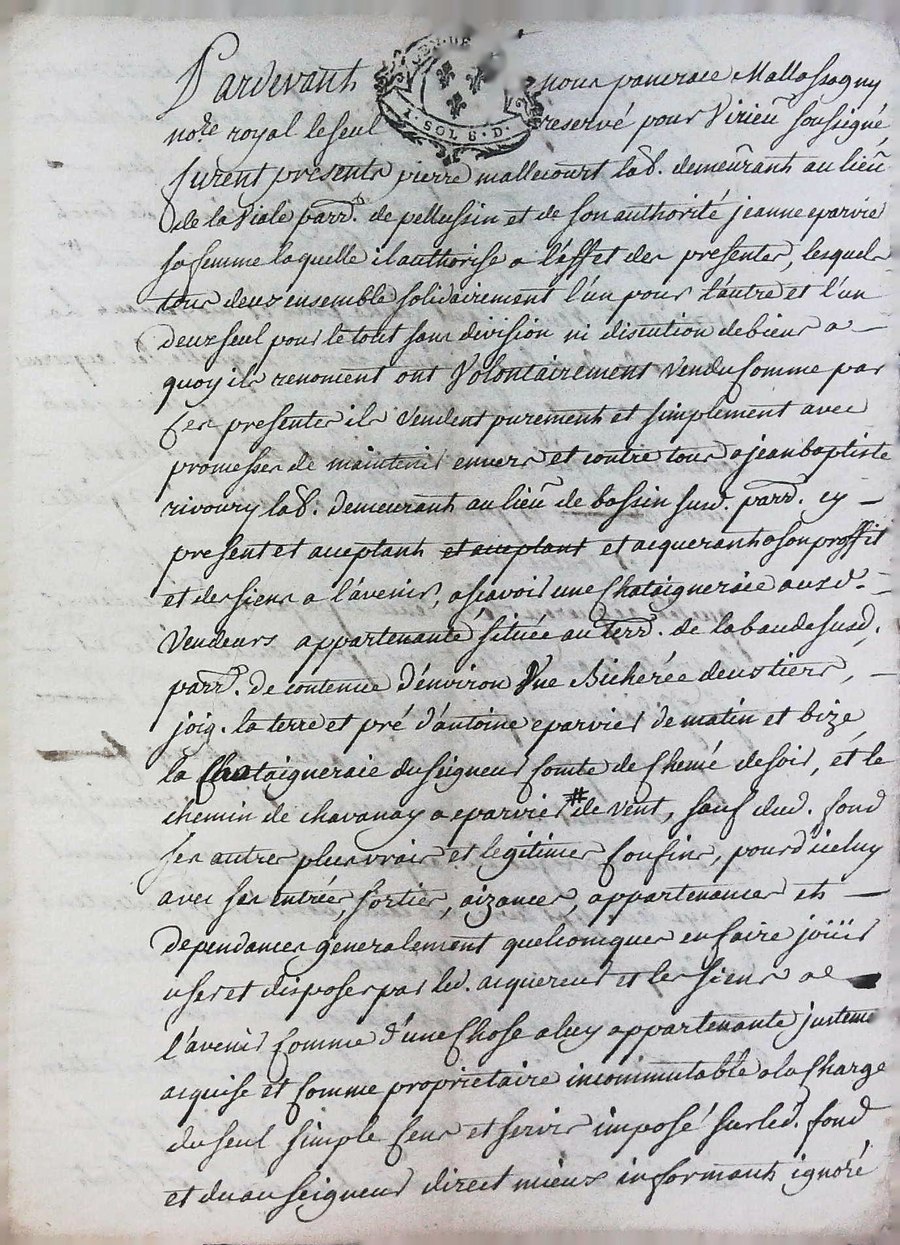 GEN. DE
4. SOL 8. D.
Pardevant nous pancrace Mallassagny
no.re royal le seul reservé pour Virieu soussigné,
furent presents pierre mallecourt lab.r demeurant au lieu
de la Viale parr.e de pellussin et de son authorité jeanne eparvie
sa femme laquelle il authorise a l'effet des presentes, lesquels
tous deux ensemble solidairement l'un pour l'autre et l'un
deux seul pour le tout sans division ni discution de biens a
quoy ils renoncent ont Volontairement vendu comme par
ces presentes ils vendent purement et simplement avec
promesses de maintenir envers et contre tous a jean baptiste
rivoury lab.r demeurant au lieu de bassin susd. parr.e cy
present et acceptant et acceptant et acquerant a son proffit
et des siens a l'avenir, ascavoir une Chataigneraie ausd.
Vendeurs appartenante située au terr.e de la baude susd.
parr.e de contenue d'environ Une Bicherée deux tiers,
joig. la terre et pré d'antoine eparvier de matin et bize
la Chataigneraie du seigneur Comte de Chenié de soir, et le
chemin de chavanay a eparvier # de vent, sauf dud. fond
ses autres plus vrais et legitimes Confins, pour d'iceluy
avec ses entrées, sorties, aizances, appartenances et
dependances generalement quelconques en faire joüir
user et disposer par led. acquereur et les siens a
l'avenir comme d'une Chose a luy appartenante justeme
acquise et Comme proprietaire incommutable a la Charge
du seul simple Cens et servis imposé sur led. fond
et du au seigneur direct mieux informant ignoré